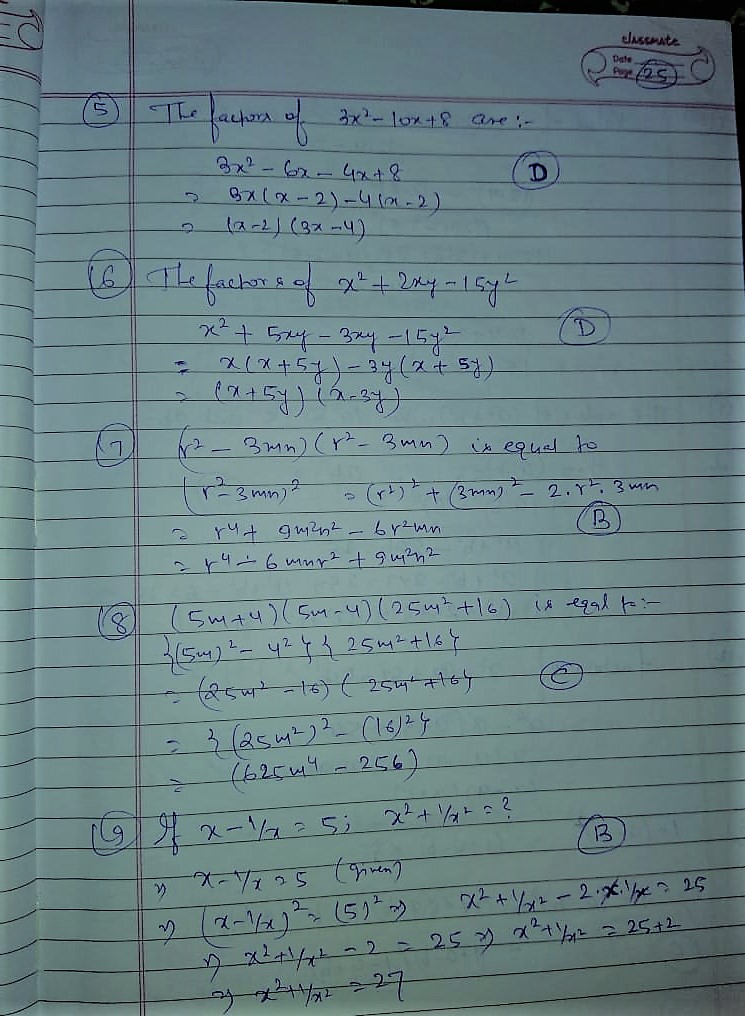 classmate
Date
Page 25
5 The factors of 3x² - 10x + 8 are :-
3x² - 6x - 4x + 8 D
⇒ 3x(x - 2) - 4(x - 2)
⇒ (x - 2) (3x - 4)
6 The factors of x² + 2xy - 15y²
x² + 5xy - 3xy - 15y² D
= x(x + 5y) - 3y(x + 5y)
= (x + 5y) (x - 3y)
7 (r² - 3mn) (r² - 3mn) is equal to
(r² - 3mn)² = (r²)² + (3mn)² - 2.r².3mn
= r⁴ + 9m²n² - 6r²mn B
= r⁴ - 6mnr² + 9m²n²
8 (5m+4)(5m-4)(25m²+16) is eqal to:-
{(5m)² - 4²} { 25m² + 16}
= (25m² - 16) ( 25m² + 16} C
= {(25m²)² - (16)²}
= (625m⁴ - 256)
9 If x - 1/x = 5; x² + 1/x² = ?
B
⇒ x - 1/x = 5 (given)
⇒ (x - 1/x)² = (5)² ⇒ x² + 1/x² - 2.x.1/x = 25
⇒ x² + 1/x² - 2 = 25 ⇒ x² + 1/x² = 25+2
⇒ x² + 1/x² = 27